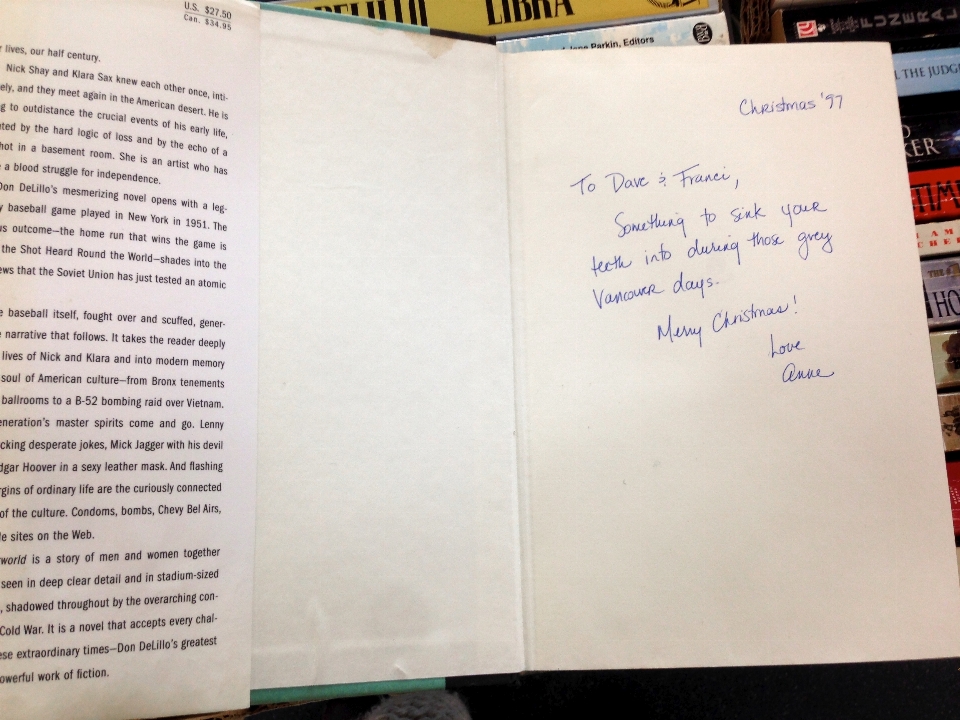 U.S. $27.50
Can. $34.95
lives, our half century.
Nick Shay and Klara Sax knew each other once, inti-
ely, and they meet again in the American desert. He is
g to outdistance the crucial events of his early life,
ted by the hard logic of loss and by the echo of a
hot in a basement room. She is an artist who has
a blood struggle for independence.
Don DeLillo's mesmerizing novel opens with a leg-
y baseball game played in New York in 1951. The
us outcome—the home run that wins the game is
the Shot Heard Round the World—shades into the
ews that the Soviet Union has just tested an atomic
e baseball itself, fought over and scuffed, gener-
narrative that follows. It takes the reader deeply
lives of Nick and Klara and into modern memory
soul of American culture—from Bronx tenements
ballrooms to a B-52 bombing raid over Vietnam.
eneration's master spirits come and go. Lenny
cking desperate jokes, Mick Jagger with his devil
dgar Hoover in a sexy leather mask. And flashing
rgins of ordinary life are the curiously connected
of the culture. Condoms, bombs, Chevy Bel Airs,
le sites on the Web.
world is a story of men and women together
seen in deep clear detail and in stadium-sized
, shadowed throughout by the overarching con-
Cold War. It is a novel that accepts every chal-
ese extraordinary times—Don DeLillo's greatest
owerful work of fiction.
DELILLO LIBRA
Parkin, Editors
FUNERAL
THE JUDG
Christmas '97
To Dave & Franci,
Something to sink your
teeth into during those grey
Vancouver days.
Merry Christmas!
Love
Anne